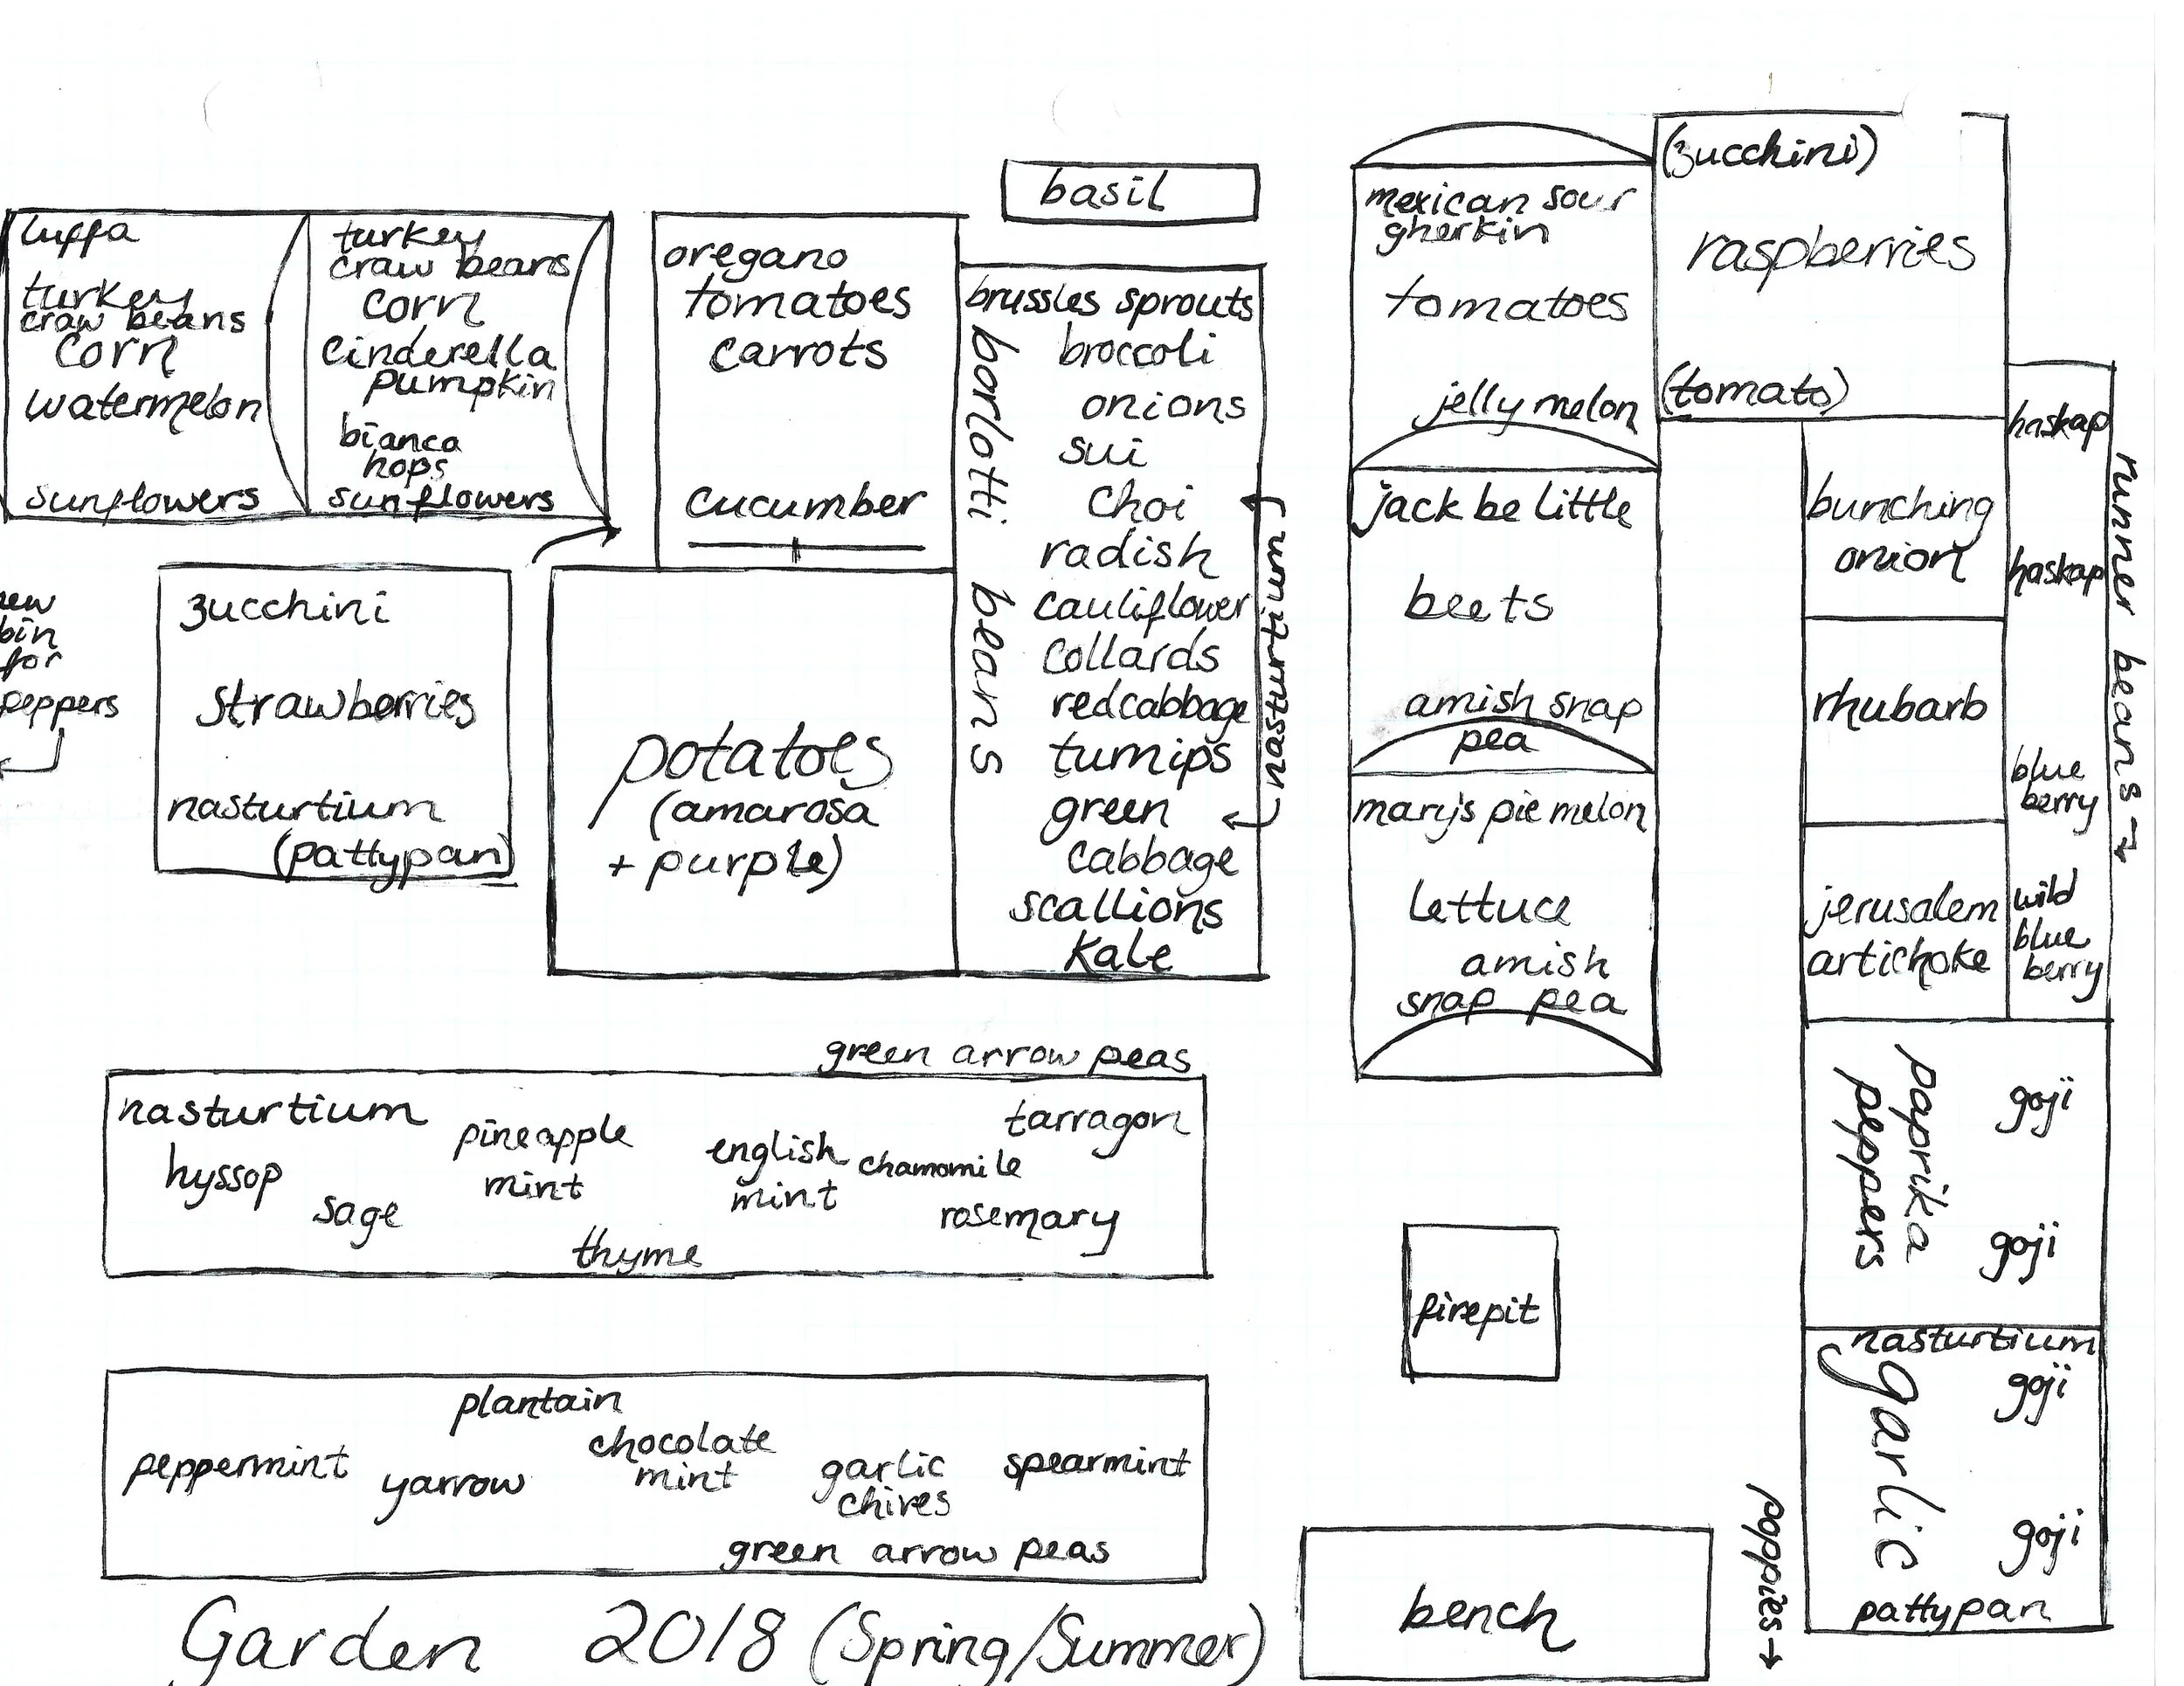 luffa
turkey
craw beans
corn
watermelon
sunflowers
turkey
craw beans
corn
cinderella
pumpkin
bianca
hops
sunflowers
oregano
tomatoes
carrots
cucumber
basil
brussles sprouts
borlotti beans
broccoli
onions
sui
choi
radish
cauliflower
collards
red cabbage
turnips
green
cabbage
scallions
kale
nasturtium
mexican sour
gherkin
tomatoes
jelly melon
jack be little
beets
amish snap
pea
mary's pie melon
lettuce
amish
snap pea
(zucchini)
raspberries
(tomato)
bunching
onion
rhubarb
jerusalem
artichoke
haskap
haskap
blue
berry
wild
blue
berry
runner beans →
new
bin
for
peppers
zucchini
strawberries
nasturtium
(pattypan)
potatoes
(amarosa
+ purple)
green arrow peas
nasturtium
hyssop
sage
pineapple
mint
thyme
english
mint
chamomile
tarragon
rosemary
paprika
peppers
goji
goji
firepit
nasturtium
garlic
goji
goji
pattypan
plantain
peppermint
yarrow
chocolate
mint
garlic
chives
spearmint
green arrow peas
poppies →
bench
Garden 2018 (Spring/Summer)